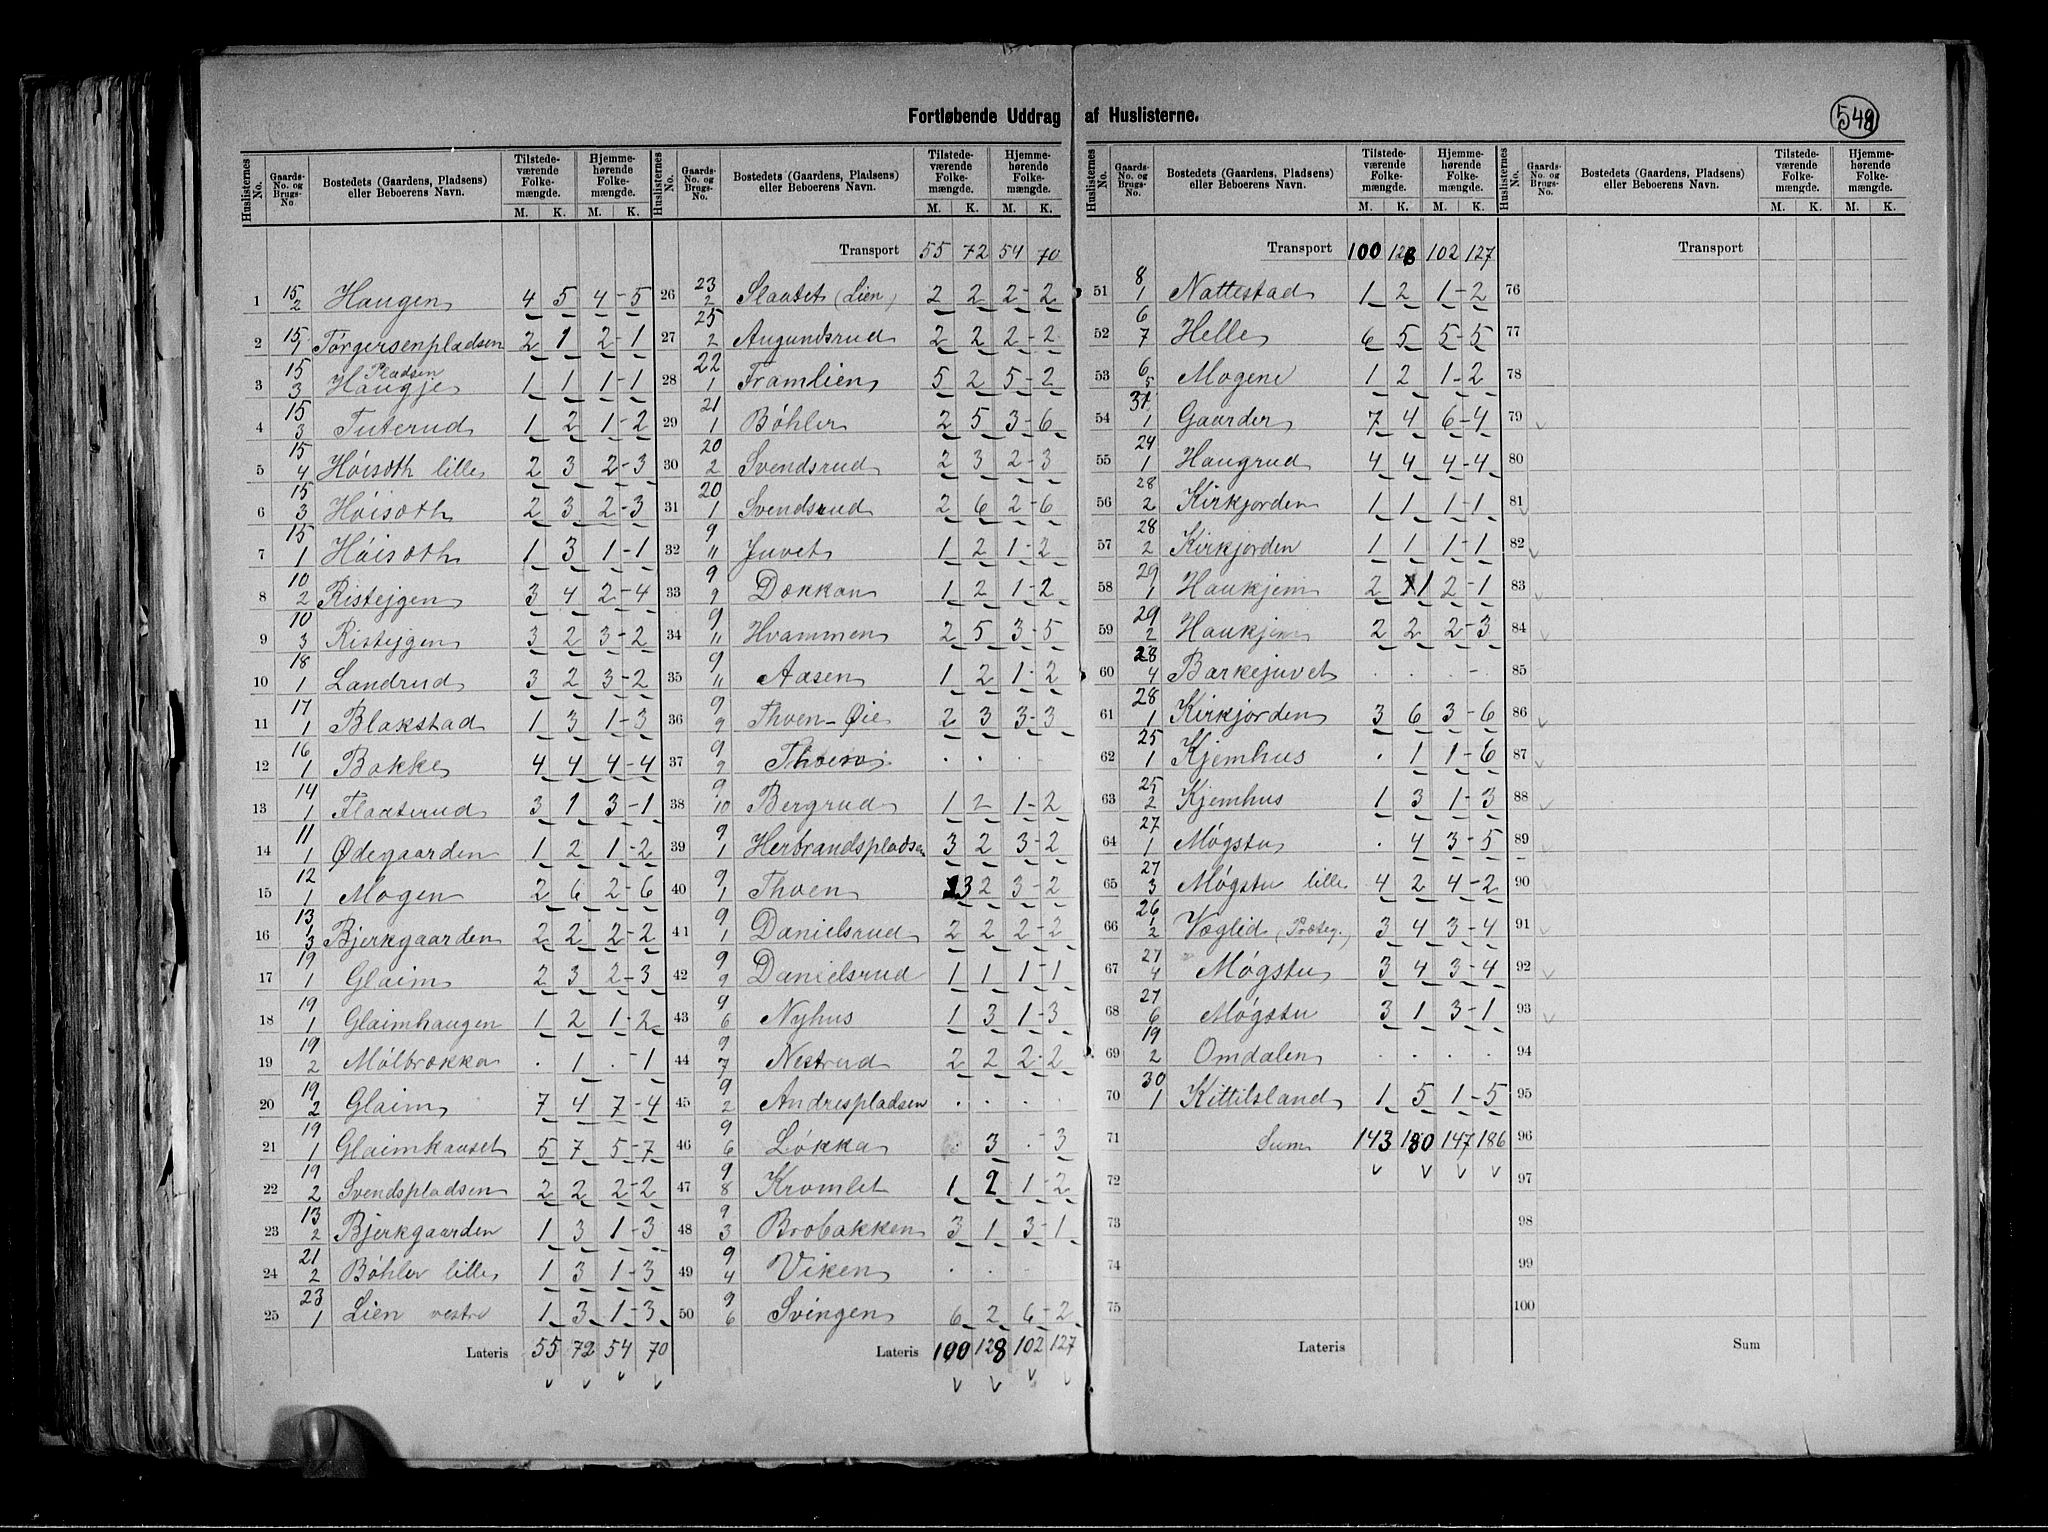 Fortløbende Uddrag af Huslisterne.
548
Huslisternes No. Gaards-No. og Brugs-No. Bostedets (Gaardens, Pladsens) eller Beboerens Navn. Tilstedeværende Folkemængde. M. K. Hjemmehørende Folkemængde. M. K.
1 15/2 Haugen 4 5 4-5
2 15/1 Torgersenpladsen 2 1 2-1
3 15/3 Haugje Pladsen 1 1 1-1
4 15/3 Tuterud 1 2 1-2
5 15/4 Høisæth lille 2 3 2-3
6 15/3 Høisæth 2 3 2-3
7 15/1 Høisæth 1 3 1-1
8 10/2 Ristejgen 3 4 2-4
9 10/3 Ristejgen 3 2 3-2
10 18/1 Landrud 3 2 3-2
11 17/1 Blakstad 1 3 1-3
12 16/1 Bakke 4 4 4-4
13 14/1 Flaaterud 3 1 3-1
14 11/1 Ødegaarden 1 2 1-2
15 12/1 Mogen 2 6 2-6
16 13/1 3 Bjerkgaarden 2 2 2-2
17 19/1 Glaim 2 3 2-3
18 19/1 Glaimhaugen 1 2 1-2
19 19/2 Mølbrækka . 1 .-1
20 19/2 Glaim 7 4 7-4
21 19/1 Glaimhauset 5 7 5-7
22 19/2 Svendspladsen 2 2 2-2
23 13/2 Bjerkgaarden 1 3 1-3
24 21/2 Bøhler lille 1 3 1-3
25 23/1 Lien vestre 1 3 1-3
Lateris 55 72 54 70
Huslisternes No. Gaards-No. og Brugs-No. Bostedets (Gaardens, Pladsens) eller Beboerens Navn. Tilstedeværende Folkemængde. M. K. Hjemmehørende Folkemængde. M. K.
Transport 55 72 54 70
26 23/2 Slaatet (Lien) 2 2 2-2
27 25/2 Augundsrud 2 2 2-2
28 22/1 Framlien 5 2 5-2
29 21/1 Bøhler 2 5 3-6
30 20/2 Svendsrud 2 3 2-3
31 20/1 Svendsrud 2 6 2-6
32 9/11 Juvet 1 2 1-2
33 9/9 Dokkan 1 2 1-2
34 9/11 Hvammen 2 5 3-5
35 9/11 Aasen 1 2 1-2
36 9/9 Thoen-Øie 2 3 3-3
37 9/2 Thoen . . . .
38 9/10 Bergrud 1 2 1-2
39 9/1 Herbrandspladsen 3 2 3-2
40 9/1 Thoen 3 2 3-2
41 9/1 Danielsrud 2 2 2-2
42 9/9 Danielsrud 1 1 1-1
43 9/6 Nyhus 1 3 1-3
44 9/7 Nestrud 2 2 2-2
45 9/2 Andrespladsen . . . .
46 9/6 Løkka . 3 .-3
47 9/8 Kromlet 1 2 1-2
48 9/3 Brobakken 3 1 3-1
49 9/4 Viken . . .
50 9/6 Svingen 6 2 6-2
Lateris 100 128 102 127
Huslisternes No. Gaards-No. og Brugs-No. Bostedets (Gaardens, Pladsens) eller Beboerens Navn. Tilstedeværende Folkemængde. M. K. Hjemmehørende Folkemængde. M. K.
Transport 100 128 102 127
51 8/1 Nattestad 1 2 1-2
52 6/7 Helle 6 5 5-5
53 6/5 Mogene 1 2 1-2
54 31/1 Gaarder 7 4 6-4
55 24/1 Haugrud 4 4 4-4
56 28/2 Kirkjorden 1 1 1-1
57 28/2 Kirkjorden 1 1 1-1
58 29/1 Haukjem 2 1 2-1
59 29/2 Haukjem 2 2 2-3
60 28/4 Barkejuvet . . . - .
61 28/1 Kirkjorden 3 6 3-6
62 25/1 Kjemhus . 1 1-6
63 25/2 Kjemhus 1 3 1-3
64 27/1 Møgstu . 4 3-5
65 27/3 Møgstu lille 4 2 4-2
66 26/1 2 Væglid (Præteg.) 3 4 3-4
67 27/4 Møgstu 3 4 3-4
68 27/6 Møgstu 3 1 3-1
69 19/2 Omdalen . . . .
70 30/1 Kittilsland 1 5 1-5
71 Sum 143 180 147 186
72
73
74
75
Lateris
Huslisternes No. Gaards-No. og Brugs-No. Bostedets (Gaardens, Pladsens) eller Beboerens Navn. Tilstedeværende Folkemængde. M. K. Hjemmehørende Folkemængde. M. K.
Transport
76
77
78
79
80
81
82
83
84
85
86
87
88
89
90
91
92
93
94
95
96
97
98
99
100
Sum